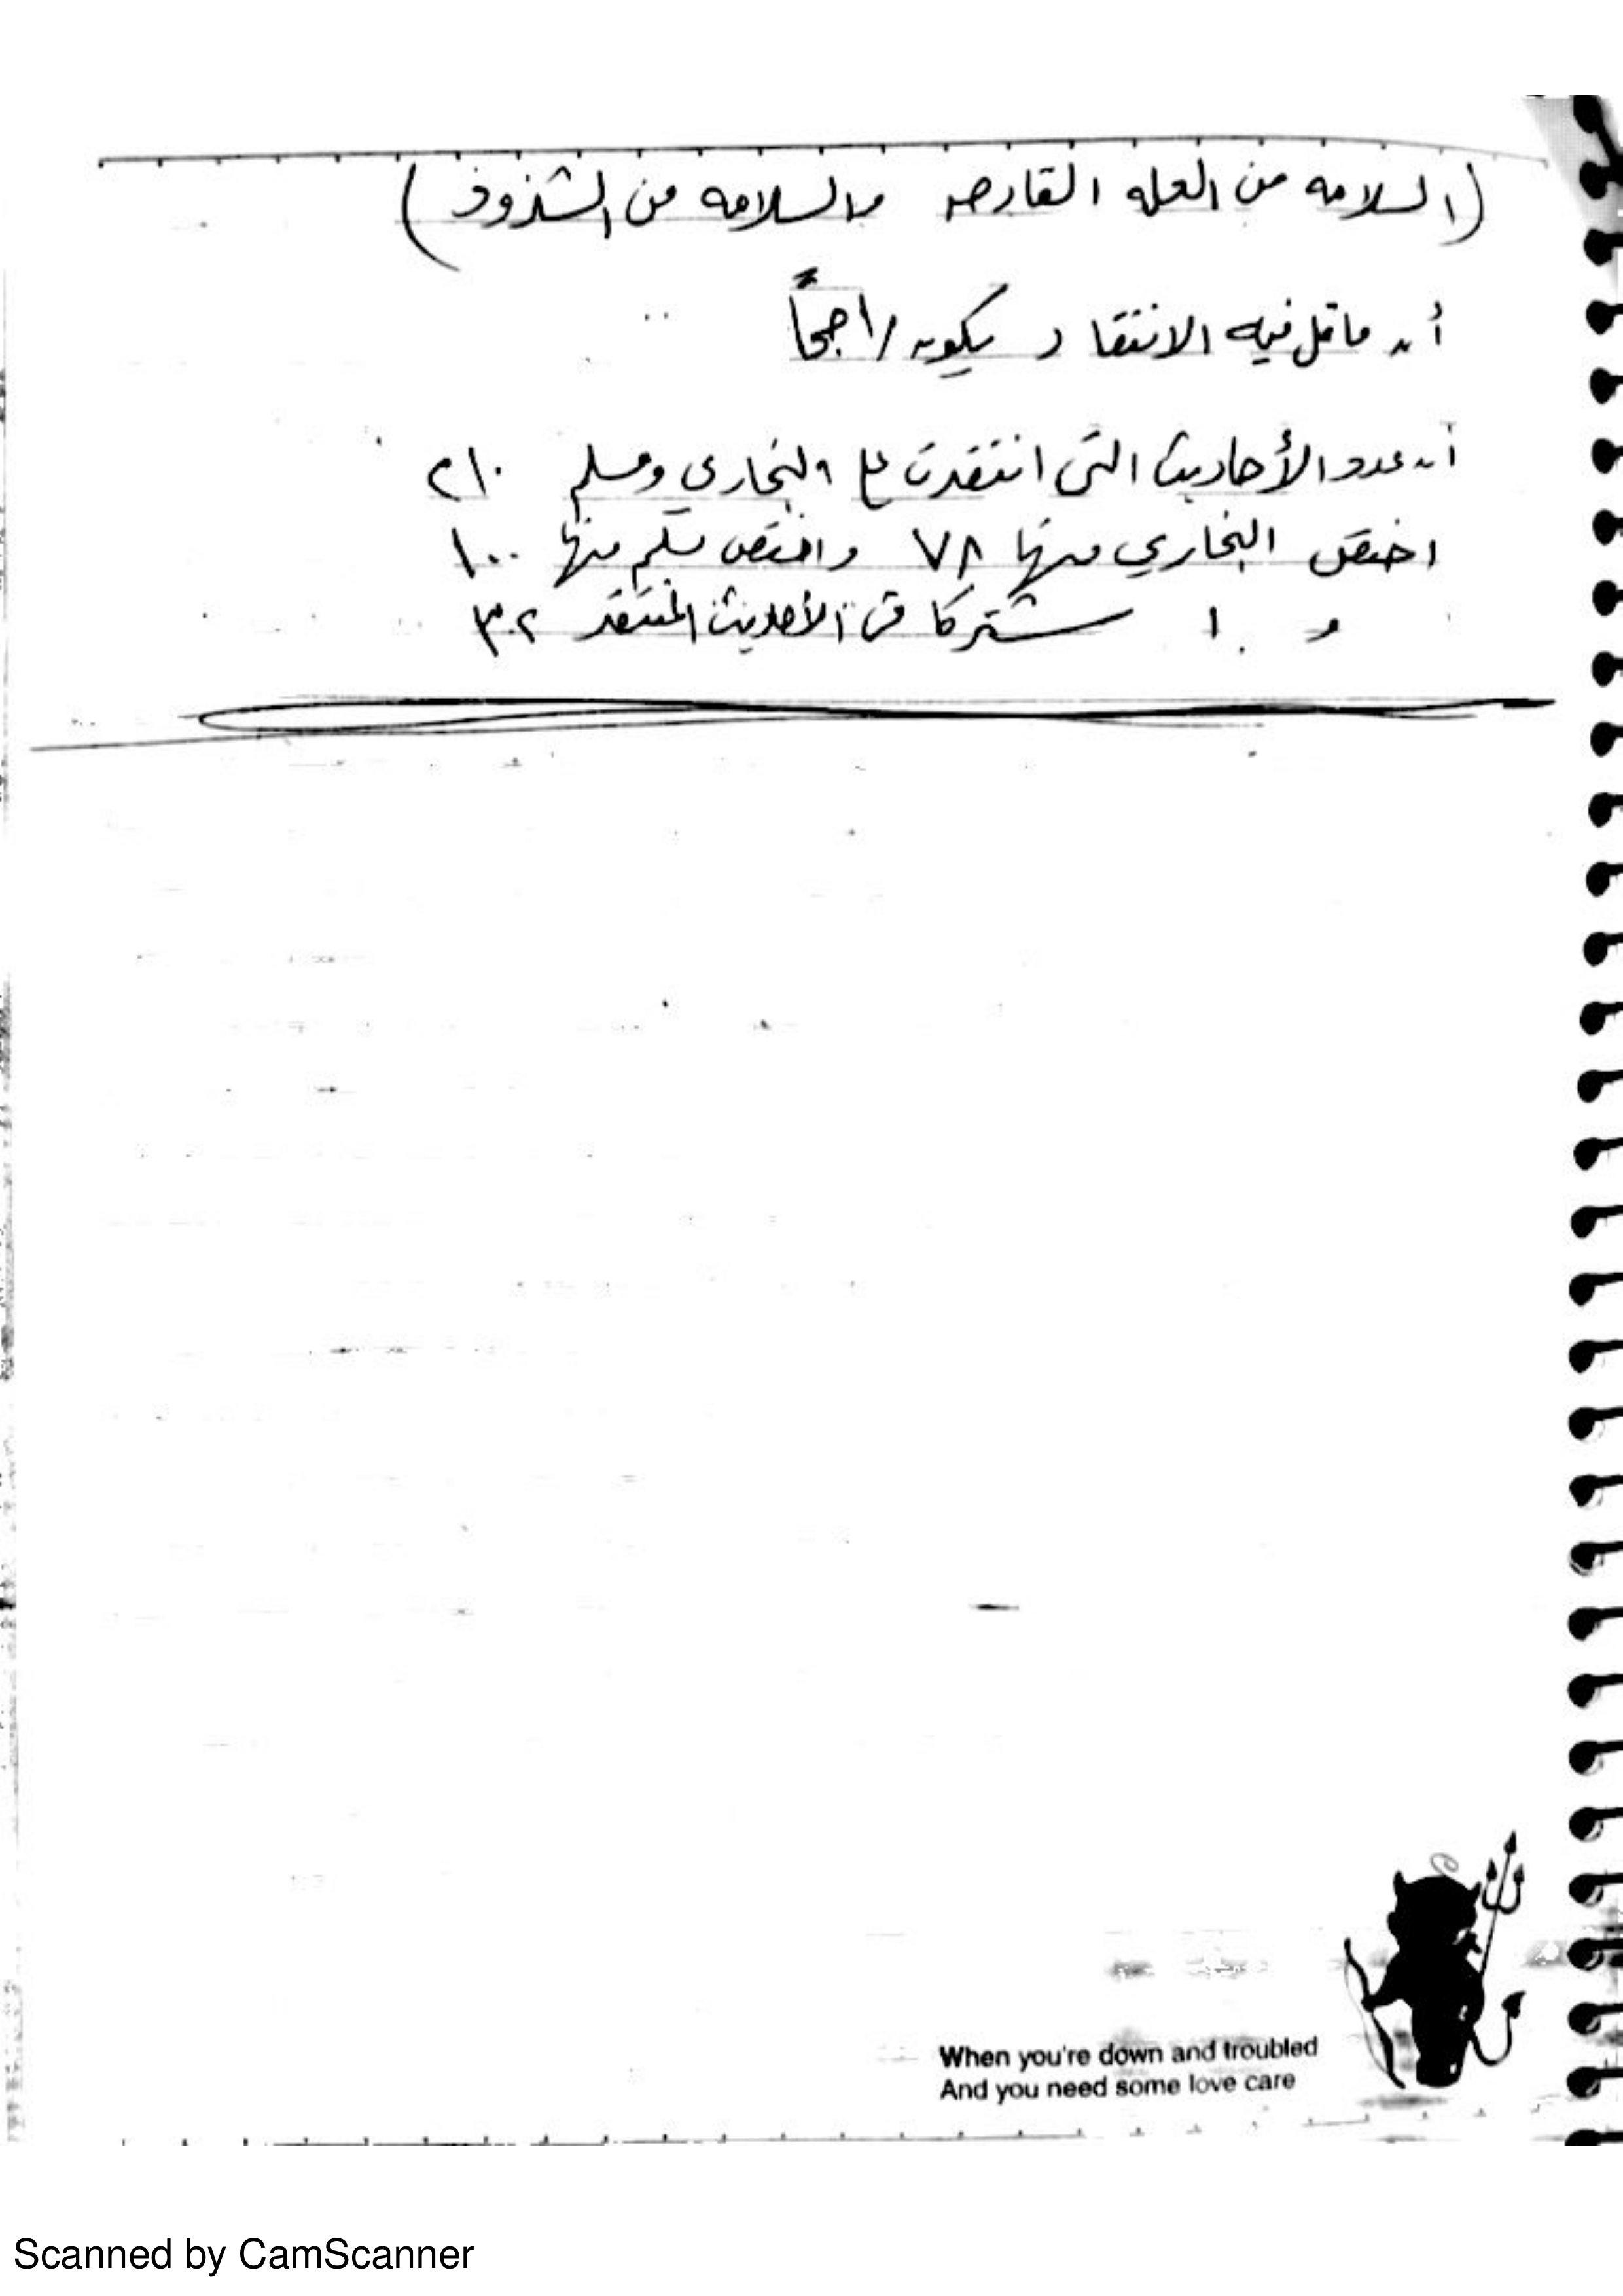 (السلامه من العله القادحه والسلامه من الشذوذ)
أن ماقل فيه الانتقاد يكون راجحاً
أن عدد الأحاديث التى انتقدت على البخاري ومسلم ٢١٠
اختص البخاري منها ٧٨ واختص مسلم منها ١٠٠
و اشتركا فى الأحاديث المنتقد ٣٠٢
When you're down and troubled
And you need some love care
Scanned by CamScanner